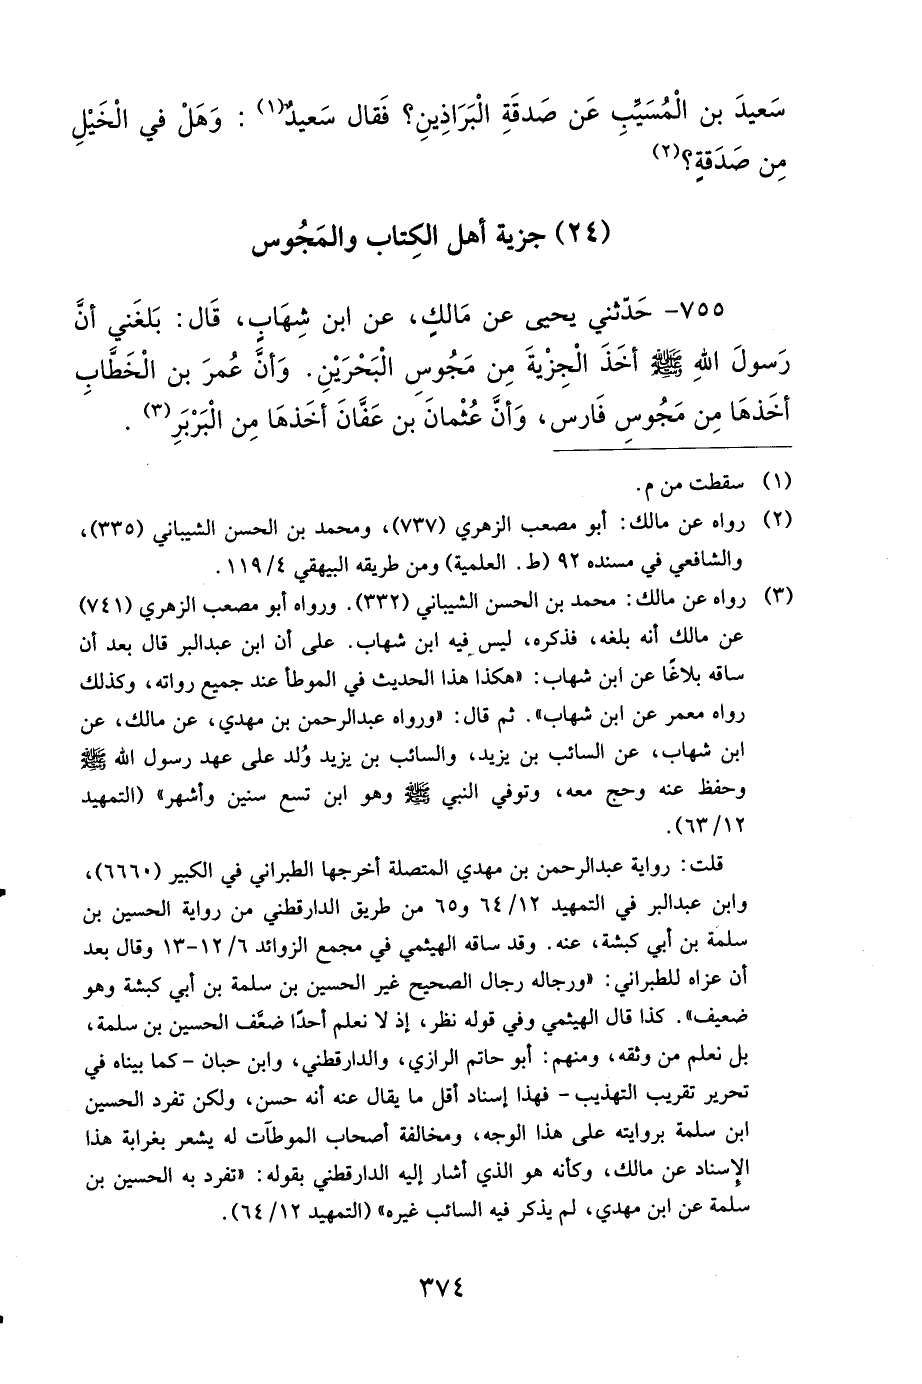 سَعيدَ بن الْمُسَيِّبِ عَن صَدقَةِ الْبَرَاذِينِ؟ فَقال سَعيدٌ(١) : وَهَلْ في الْخَيْلِ
مِن صَدَقةٍ؟(٢)
(٢٤) جزية أهل الكِتاب والمَجُوس
٧٥٥- حَدّثني يحيى عن مَالكٍ، عن ابن شِهَابٍ، قَال: بَلغَني أنَّ
رَسولَ اللهِ ﷺ أخَذَ الْجِزْيةَ مِن مَجُوسِ الْبَحْرَيْنِ. وَأنَّ عُمرَ بن الْخَطَّابِ
أخَذهَا مِن مَجُوسِ فَارس، وَأنَّ عُثْمانَ بن عَفَّانَ أخَذهَا مِن الْبَرْبَرِ(٣) .
(١) سقطت من م.
(٢) رواه عن مالك: أبو مصعب الزهري (٧٣٧)، ومحمد بن الحسن الشيباني (٣٣٥)،
والشافعي في مسنده ٩٢ (ط. العلمية) ومن طريقه البيهقي ٤/ ١١٩.
(٣) رواه عن مالك: محمد بن الحسن الشيباني (٣٣٢). ورواه أبو مصعب الزهري (٧٤١)
عن مالك أنه بلغه، فذكره، ليس فيه ابن شهاب. على أن ابن عبدالبر قال بعد أن
ساقه بلاغًا عن ابن شهاب: «هكذا هذا الحديث في الموطأ عند جميع رواته، وكذلك
رواه معمر عن ابن شهاب». ثم قال: «ورواه عبدالرحمن بن مهدي، عن مالك، عن
ابن شهاب، عن السائب بن يزيد، والسائب بن يزيد وُلد على عهد رسول الله ﷺ
وحفظ عنه وحج معه، وتوفي النبي ﷺ وهو ابن تسع سنين وأشهر» (التمهيد
١٢/ ٦٣).
قلت: رواية عبدالرحمن بن مهدي المتصلة أخرجها الطبراني في الكبير (٦٦٦٠)،
وابن عبدالبر في التمهيد ١٢/ ٦٤ و٦٥ من طريق الدارقطني من رواية الحسين بن
سلمة بن أبي كبشة، عنه. وقد ساقه الهيثمي في مجمع الزوائد ٦/ ١٢-١٣ وقال بعد
أن عزاه للطبراني: «ورجاله رجال الصحيح غير الحسين بن سلمة بن أبي كبشة وهو
ضعيف». كذا قال الهيثمي وفي قوله نظر، إذ لا نعلم أحدًا ضعَّف الحسين بن سلمة،
بل نعلم من وثقه، ومنهم: أبو حاتم الرازي، والدارقطني، وابن حبان -كما بيناه في
تحرير تقريب التهذيب- فهذا إسناد أقل ما يقال عنه أنه حسن، ولكن تفرد الحسين
ابن سلمة بروايته على هذا الوجه، ومخالفة أصحاب الموطآت له يشعر بغرابة هذا
الإسناد عن مالك، وكأنه هو الذي أشار إليه الدارقطني بقوله: «تفرد به الحسين بن
سلمة عن ابن مهدي، لم يذكر فيه السائب غيره» (التمهيد ١٢/ ٦٤).
٣٧٤